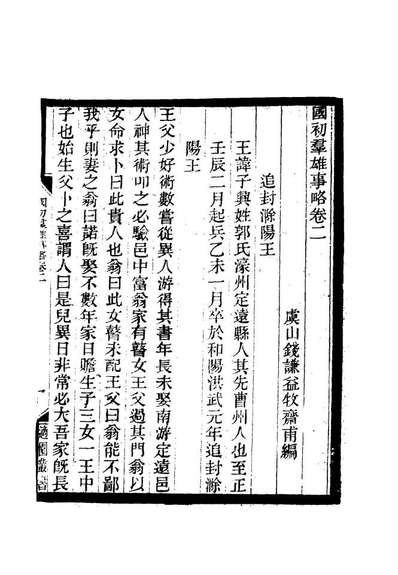 國初羣雄事略卷二
虞山錢謙益牧齋甫編
追封滁陽王
王諱子興姓郭氏濠州定遠縣人其先曹州人也至正
壬辰二月起兵乙未一月卒於和陽洪武元年追封滁
陽王
王父少好術數嘗從異人游得其書年長未娶南游定遠邑
人神其術叩之必驗邑中富翁家有瞽女王父過其門翁以
女命求卜曰此貴人也翁曰此女瞽未配王父曰翁能不鄙
我乎則妻之翁曰諾旣娶不數年家日贍生子三女一王中
子也始生父卜之喜謂人曰是兒異日非常必大吾家旣長
國初羣雄事略卷二
一
適園叢書